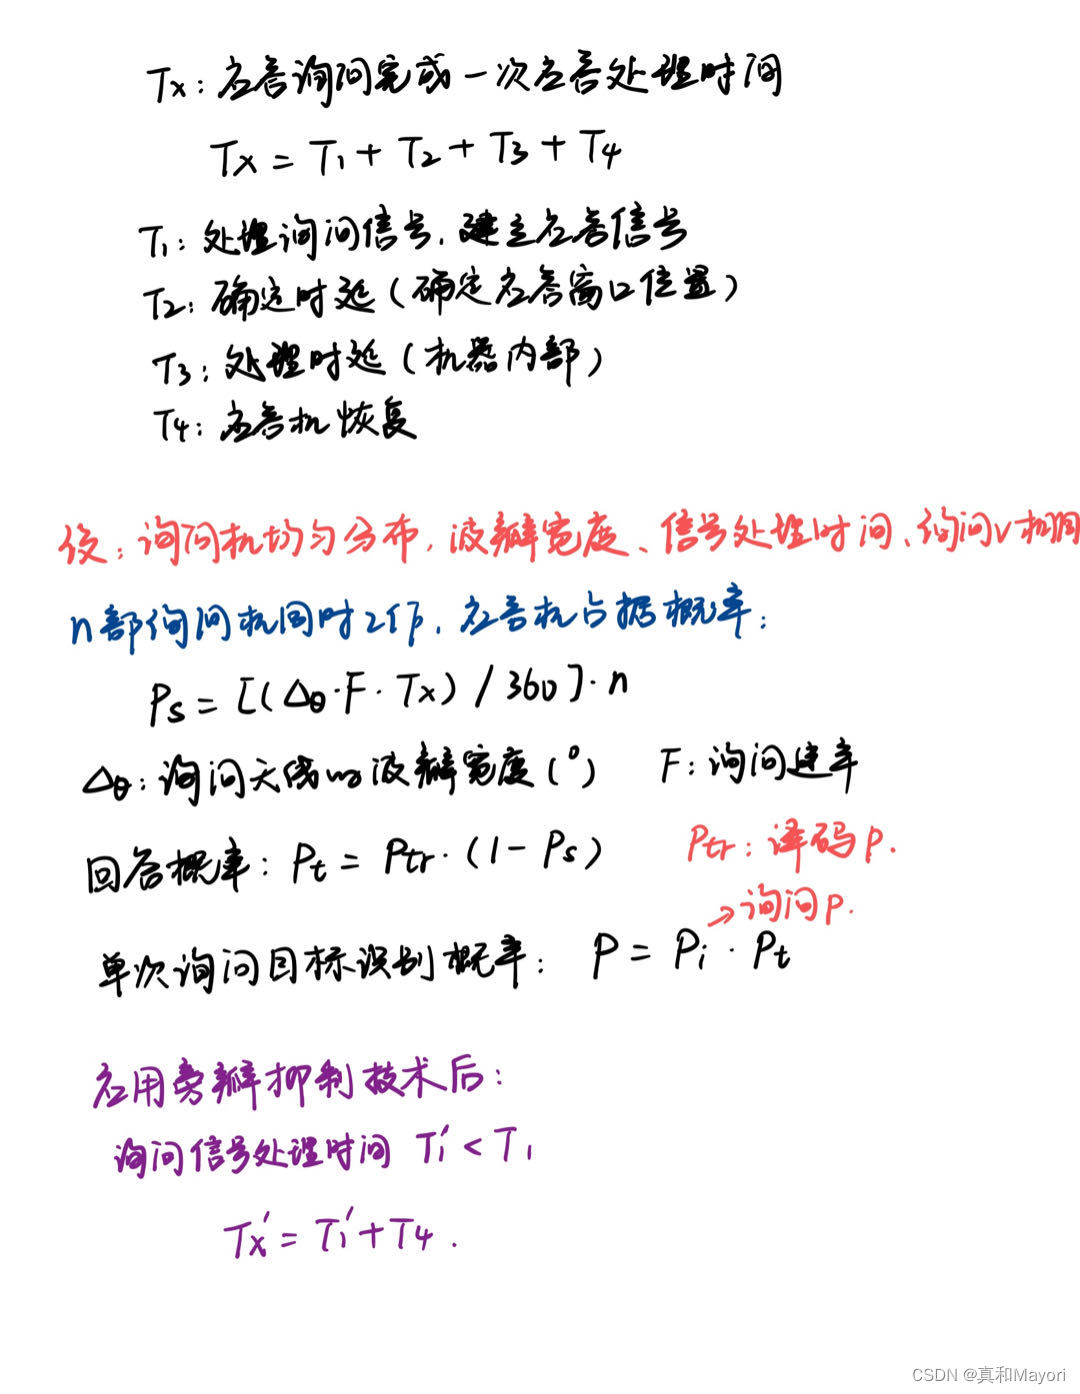 Tx：应答询问完成一次应答处理时间
Tx = T1 + T2 + T3 + T4
T1：处理询问信号，建立应答信号
T2：确定时延（确定应答窗口位置）
T3：处理时延（机器内部）
T4：应答机恢复
设：询问机均匀分布，波瓣宽度、信号处理时间、询问V相同
n部询问机同时工作，应答机占据概率：
Ps = [(Δθ·F·Tx) / 360]·n
Δθ：询问天线的波瓣宽度(°) F：询问速率
回答概率：Pt = Ptr·(1 - Ps) Ptr：译码P.
→询问P.
单次询问目标识别概率： P = Pi · Pt
应用旁瓣抑制技术后：
询问信号处理时间 T1' < T1
Tx' = T1' + T4 .
CSDN @真和Mayori